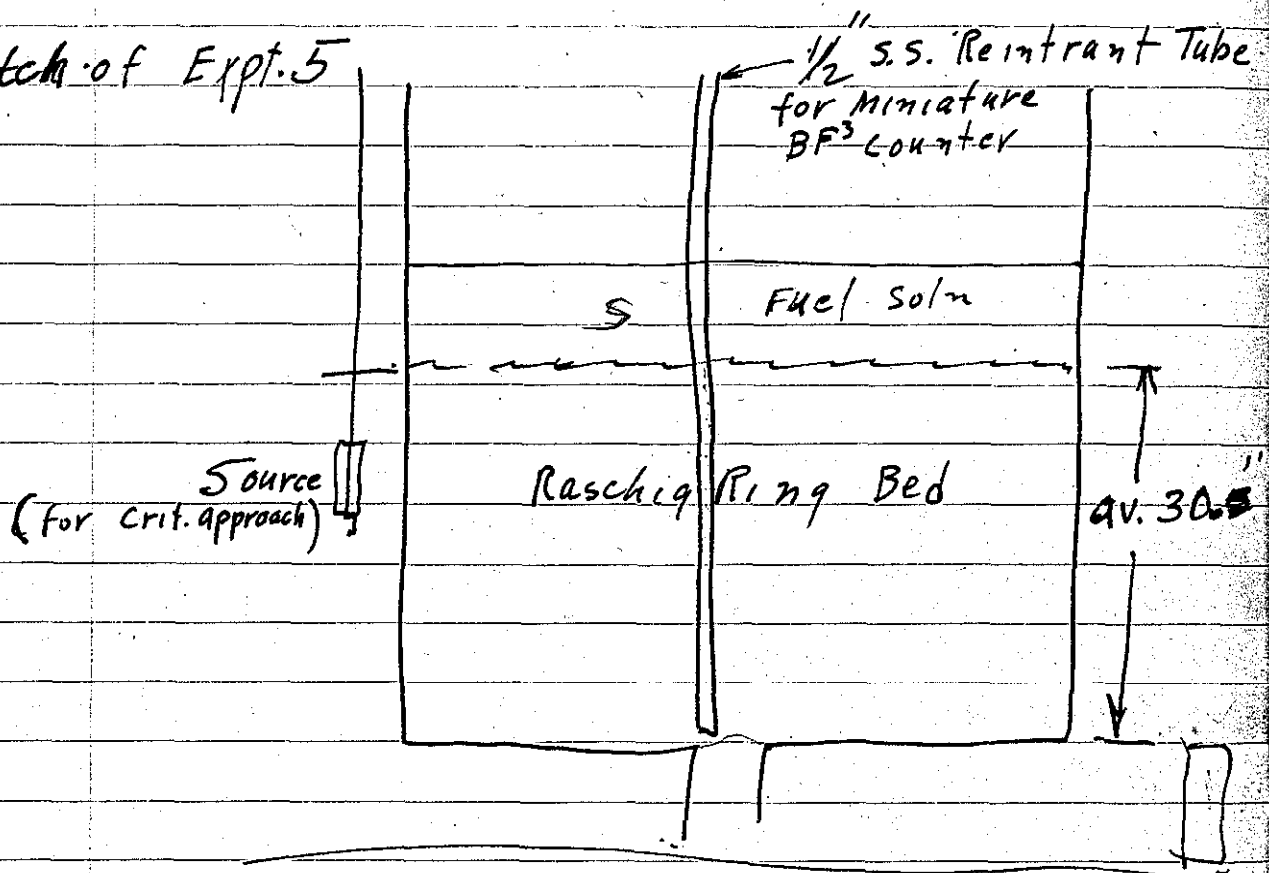 tch of Expt. 5
1/2" s.s. Reintrant Tube
for Miniature
BF³ Counter
S Fuel Soln
Source
(for Crit. approach)
Raschig Ring Bed
av. 30."